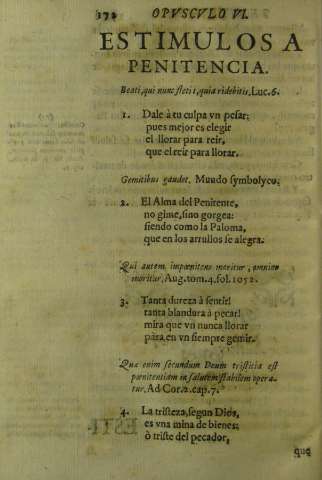 172 OPVSCVLO VI.
ESTIMULOS A
PENITENCIA.
Beati, qui nunc fletis, quia ridebitis, Luc. 6.
1. Dale à tu culpa vn pesar;
pues mejor es elegir
el llorar para reír,
que el reír para llorar.
Gemitibus gaudet. Mundo symbolyco.
2. El Alma del Penitente,
no gime, sino gorgea:
siendo como la Paloma,
que en los arrullos se alegra.
Qui autem impœnitens moritur, omnino
moritur, Aug. tom. 4. fol. 1052.
3. Tanta dureza à sentir!
tanta blandura à pecar!
mira que vn nunca llorar
para en vn siempre gemir.
Quæ enim secundum Deum tristitia est
pœnitentiam in salutem stabilem opera-
tur. Ad Cor. 2. cap. 7.
4. La tristeza, segun Dios,
es vna mina de bienes:
ò triste del pecador,
que